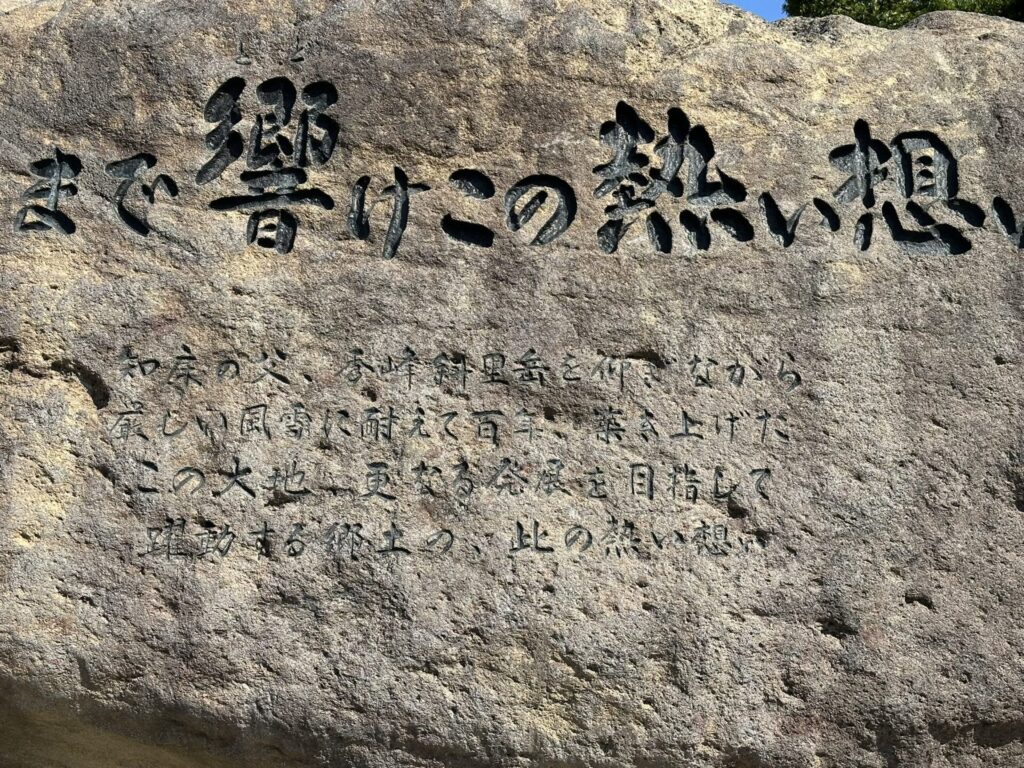 とど
まで響けこの熱い想い
知床の父、秀峰斜里岳を仰ぎながら
厳しい風雪に耐えて百年、築き上げた
この大地、更なる発展を目指して
躍動する郷土の、此の熱い想い